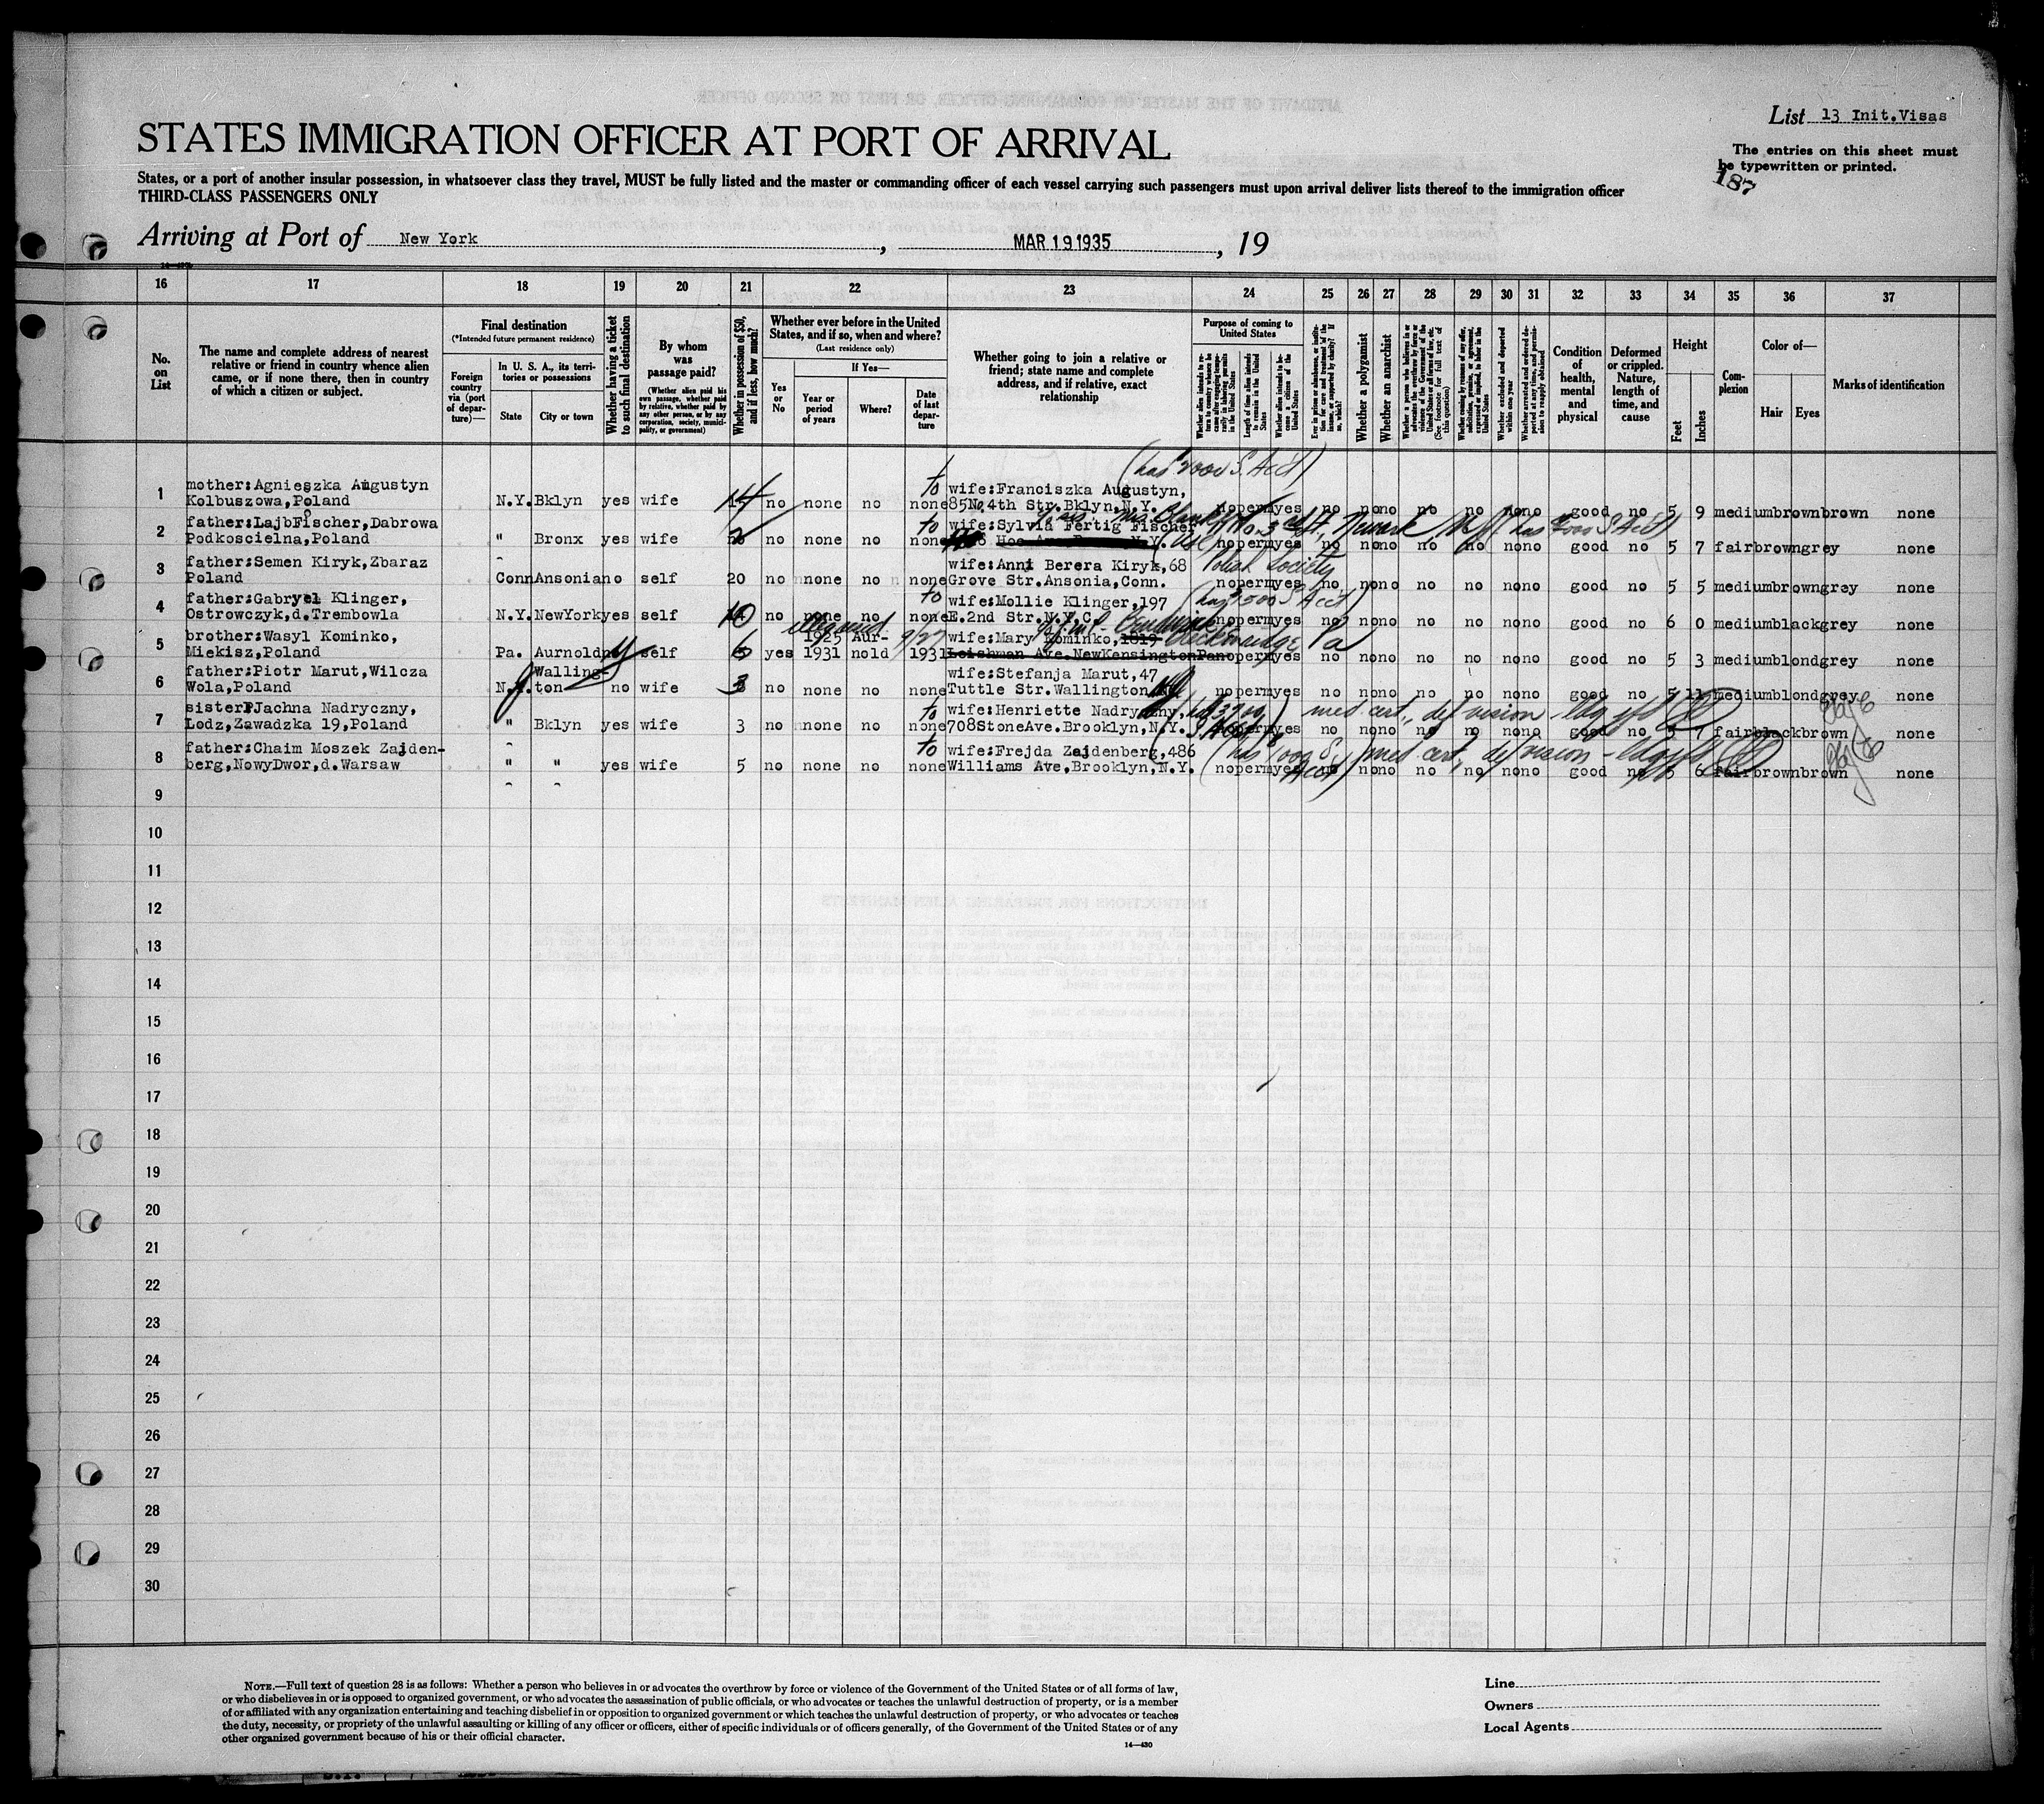 List 13 Init.Visas
STATES IMMIGRATION OFFICER AT PORT OF ARRIVAL
The entries on this sheet must
be typewritten or printed.
187
States, or a port of another insular possession, in whatsoever class they travel, MUST be fully listed and the master or commanding officer of each vessel carrying such passengers must upon arrival deliver lists thereof to the immigration officer
THIRD-CLASS PASSENGERS ONLY
Arriving at Port of New York, MAR 19 1935, 19
16 17 18 19 20 21 22 23 24 25 26 27 28 29 30 31 32 33 34 35 36 37
No. on List
The name and complete address of nearest relative or friend in country whence alien came, or if none there, then in country of which a citizen or subject.
Final destination
(*Intended future permanent residence)
Foreign country via (port of departure)—
In U. S. A., its territories or possessions
State
City or town
Whether having a ticket to such final destination
By whom was passage paid?
(Whether alien paid his own passage, whether paid by relative, whether paid by any other person, or by any corporation, society, municipality, or government)
Whether in possession of $50, and if less, how much?
Whether ever before in the United States, and if so, when and where?
(Last residence only)
Yes or No
If Yes—
Year or period of years
Where?
Date of last departure
Whether going to join a relative or friend; state name and complete address, and if relative, exact relationship
Purpose of coming to United States
Whether alien intends to return to country whence he came after engaging temporarily in laboring pursuits in the United States
Length of time alien intends to remain in the United States
Whether alien intends to become a citizen of the United States
Ever in prison or almshouse, or institution for care and treatment of the insane, or supported by charity? If so, which?
Whether a polygamist
Whether an anarchist
(See footnote for full text of this question)
Whether excluded and deported within one year
Whether arrested and ordered deported at any time, and permission to reapply obtained
Condition of health, mental and physical
Deformed or crippled. Nature, length of time, and cause
Height
Feet
Inches
Complexion
Color of—
Hair
Eyes
Marks of identification
(has 2000 S. Acct)
1 mother:Agnieszka Augustyn to wife:Franciszka Augustyn,
Kolbuszowa,Poland N.Y. Bklyn yes wife 14 no none no none 85No4th Str.Bklyn,N.Y. no perm yes no no no no no no no good no 5 9 medium brown brown none
2 father:LajbFischer,Dabrowa to wife:Sylvia Fertig Fischer
Podkoscielna,Poland " Bronx yes wife no none no none no perm yes no no no no no no no good no 5 7 fair brown grey none
3 father:Semen Kiryk,Zbaraz wife:Anni Berera Kiryk,68 Polish Society
Poland Conn Ansonia no self 20 no none no none Grove Str.Ansonia,Conn. no perm yes no no no no no no no good no 5 5 medium brown grey none
4 father:Gabryel Klinger, to wife:Mollie Klinger,197
Ostrowczyk,d.Trembowla N.Y. NewYork yes self 10 no none no none E.2nd Str.N.Y.C. no perm yes no no no no no no no good no 6 0 medium black grey none
5 brother:Wasyl Kominko, 1925 Aur- wife:Mary Kominko,1819
Miekisz,Poland Pa. Aurnold self yes 1931 nold 1931 Leishman Ave.NewKensingtonPa no perm yes no no no no no no no good no 5 3 medium blond grey none
6 father:Piotr Marut,Wilcza Walling- wife:Stefanja Marut,47
Wola,Poland N.J. ton no wife 3 no none no none Tuttle Str.Wallington no perm yes no no no no no no no good no 5 11 medium blond grey none
7 sister:Jachna Nadryczny, to wife:Henriette Nadryczny, med cert, def vision
Lodz,Zawadzka 19,Poland " Bklyn yes wife 3 no none no none 708StoneAve.Brooklyn,N.Y. perm yes no no no no no no no good no 5 7 fair black brown none
8 father:Chaim Moszek Zajden- to wife:Frejda Zajdenberg,486 (has 1000 S. Acct) med cert, def vision
berg,NowyDwor,d.Warsaw " " yes wife 5 no none no none Williams Ave,Brooklyn,N.Y. no perm yes no no no no no no no good no 5 6 fair brown brown none
9
10
11
12
13
14
15
16
17
18
19
20
21
22
23
24
25
26
27
28
29
30
NOTE.—Full text of question 28 is as follows: Whether a person who believes in or advocates the overthrow by force or violence of the Government of the United States or of all forms of law,
or who disbelieves in or is opposed to organized government, or who advocates the assassination of public officials, or who advocates or teaches the unlawful destruction of property, or is a member
of or affiliated with any organization entertaining and teaching disbelief in or opposition to organized government or which teaches the unlawful destruction of property, or who advocates or teaches
the duty, necessity, or propriety of the unlawful assaulting or killing of any officer or officers, either of specific individuals or of officers generally, of the Government of the United States or of any
other organized government because of his or their official character.
14—430
Line
Owners
Local Agents